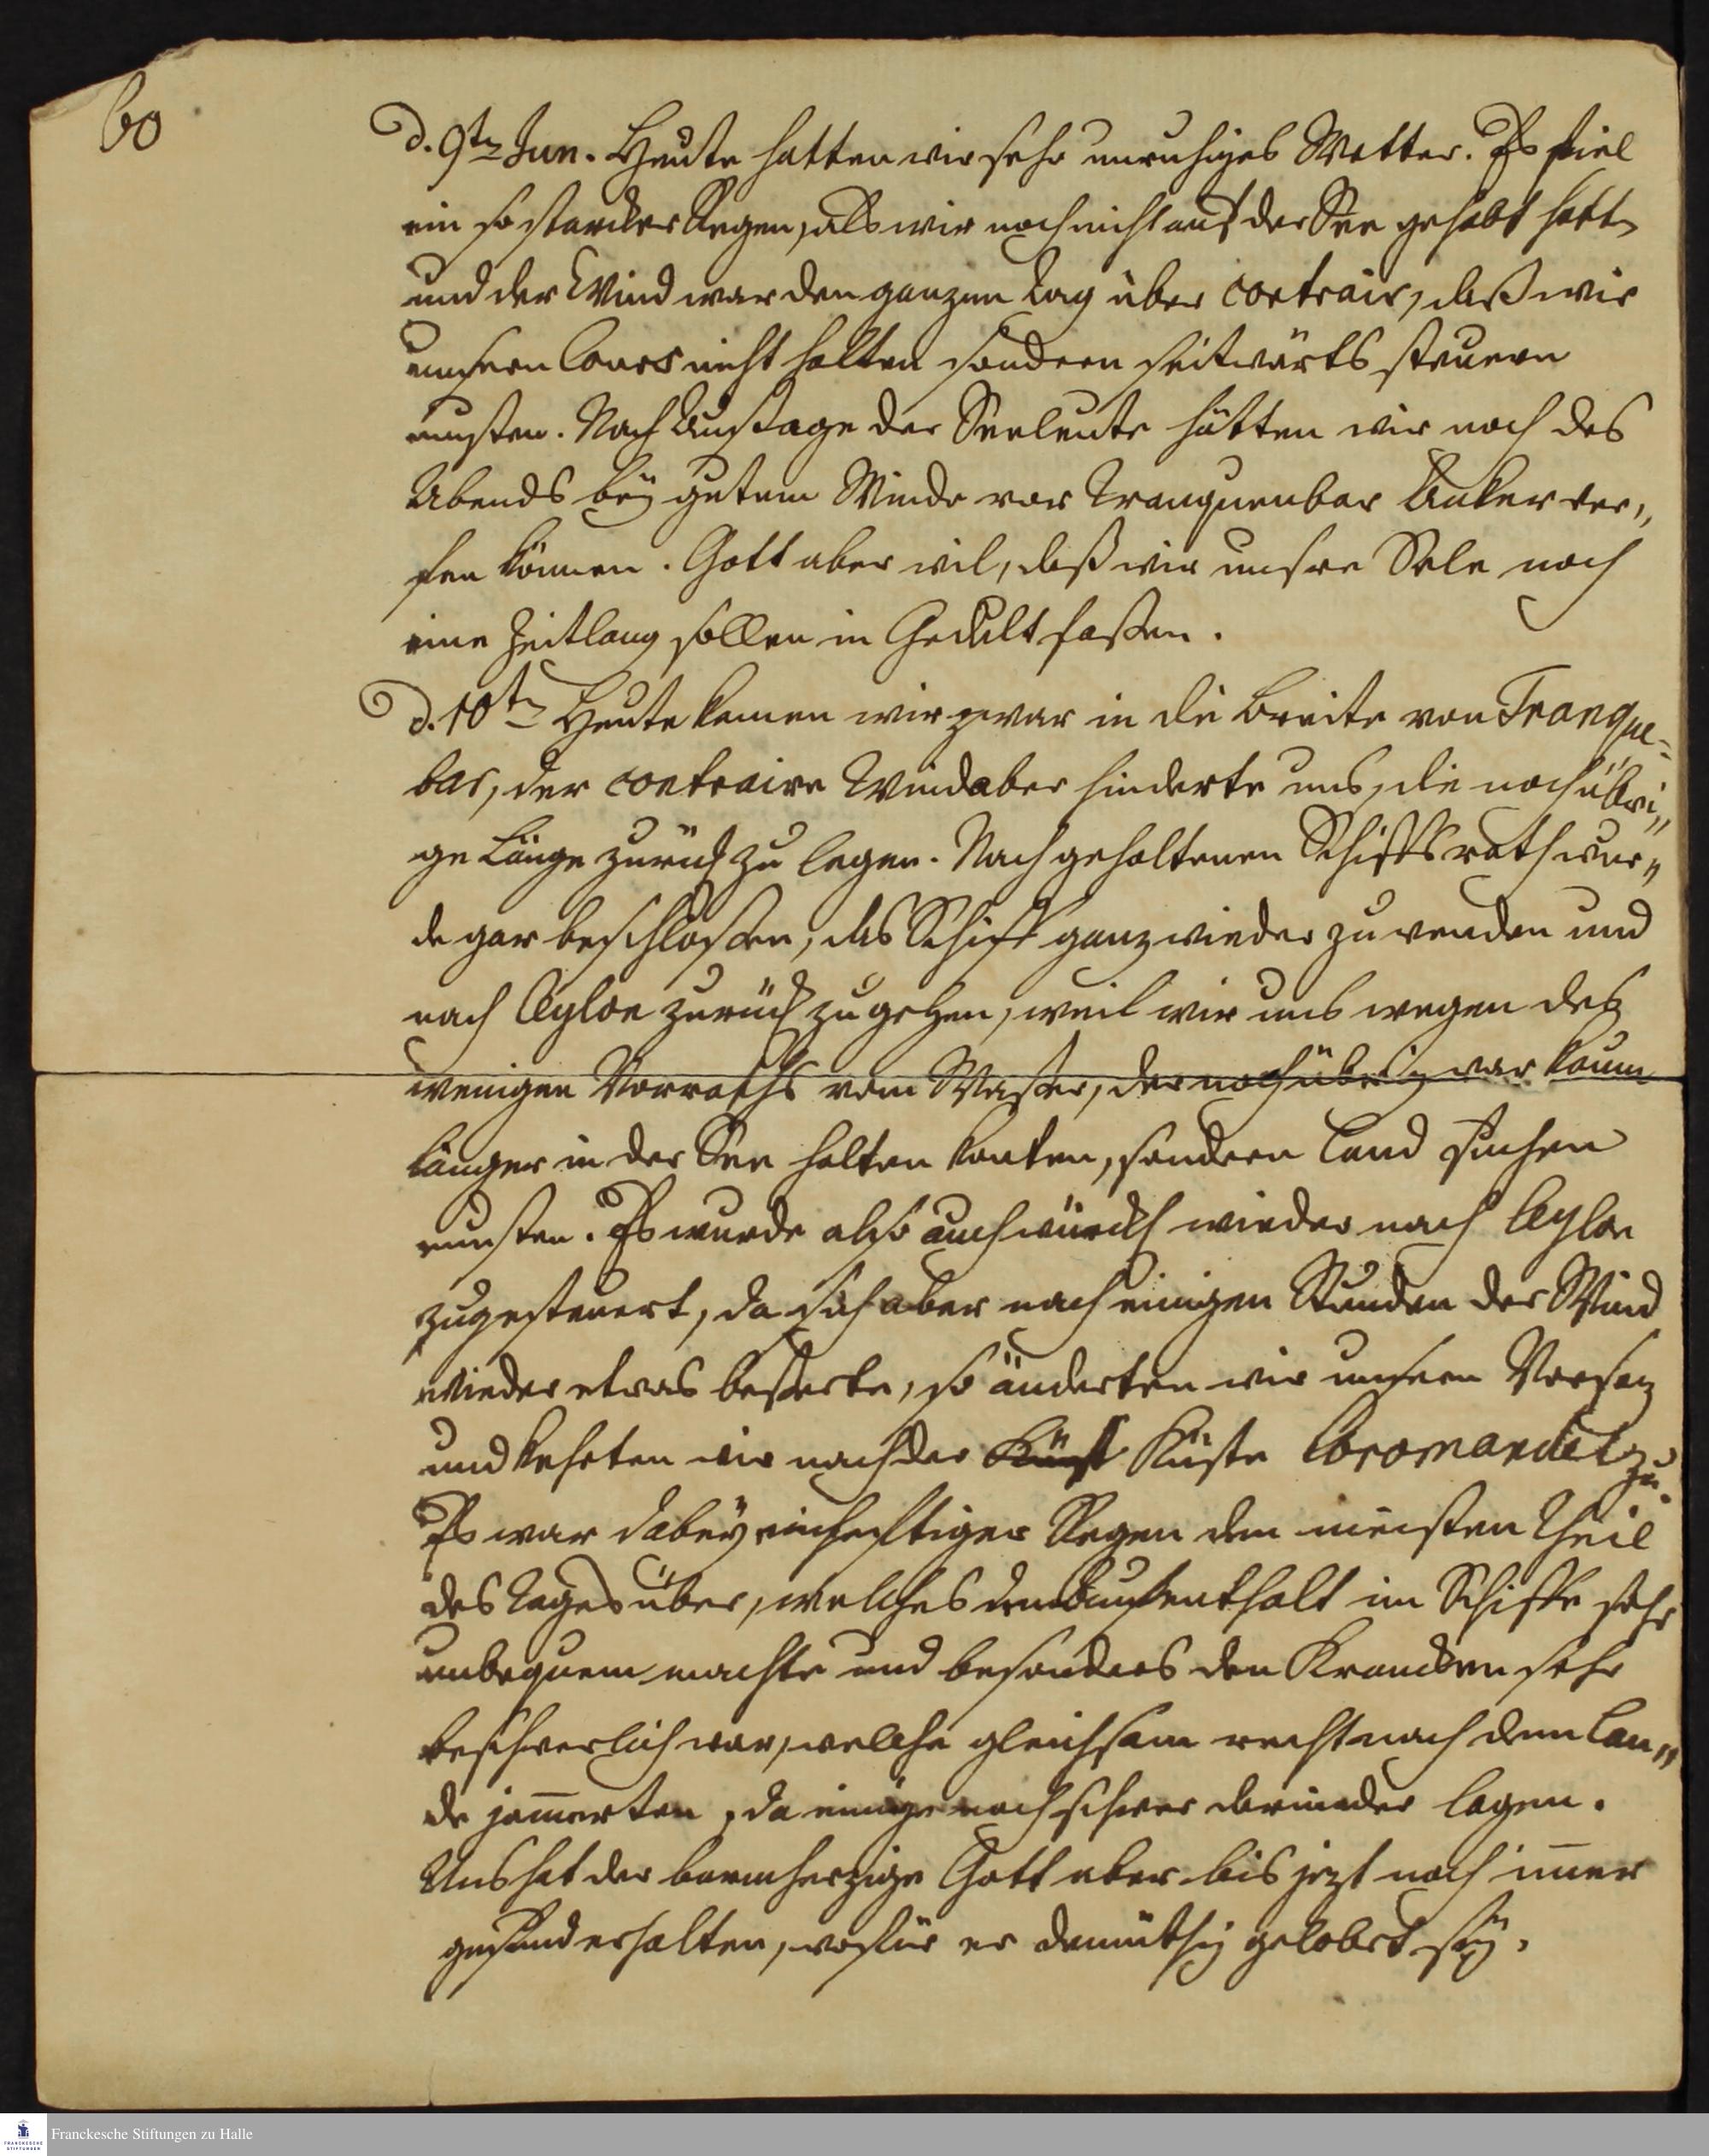 60
d. 9ten Jun. Heute hatten wir sehr unruhiges Wetter. Es fiel
ein so starcker Regen, als wir noch nicht auf der See gehabt hatten
und der Wind war den ganzen Tag über contrair, daß wir
unsern Cours nicht halten sondern seitwärts steuern
musten. Nach Aussage der Seeleute hätten wir noch des
Abends bey gutem Winde vor Tranquenbar Anker wer„
fen können. Gott aber wil, daß wir unsre Sele noch
eine Zeitlang sollen in Gedult faßen.
d. 10ten Heute kamen wir zwar in die Breite von Tranque=
bar, der contraire Wind aber hinderte uns, die noch übri„
ge Länge zurück zu legen. Nach gehaltenen Schiffsrath wur„
de gar beschloßen, das Schiff ganz wieder zu wenden und
nach Ceylon zurück zu gehen, weil wir uns wegen des
wenigen Vorraths vom Waßer, der noch übrig war kaum
länger in der See halten konten, sondern Land suchen
musten. Es wurde also auch würckl wieder nach Ceylon
zugesteuert, da sich aber nach einigen Stunden der Wind
wieder etwas beßerte, so änderten wir unsern Vorsaz
und kehrten wir nach der Küst Küste Coromandel zu.
Es war dabey ein heftiger Regen den meisten Theil
des Tages über, welches den Aufenthalt im Schiffe sehr
unbequem machte und besonders den Krancken sehr
beschwerlich war, welche gleichsam recht nach dem Lan„
de jam̄erten, da einige noch schwer darnieder lagen.
Uns hat der barmherzige Gott aber bis jezt noch im̄er
gesund erhalten, wofür er demüthig gelobet sey.
Franckesche Stiftungen zu Halle
FRANCKESCHE
STIFTUNGEN